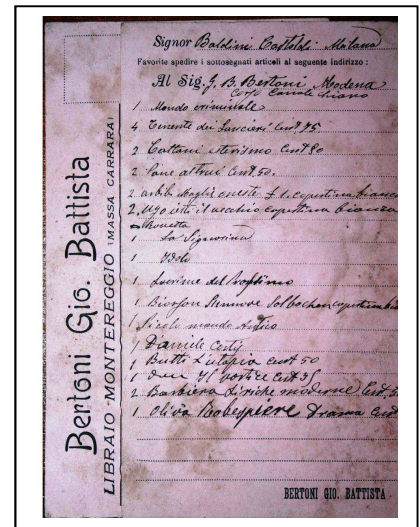 Bertoni Gio. Battista
LIBRAIO - MONTEREGGIO (MASSA CARRARA)
Signor Baldini Castoldi Milano
Favorite spedire i sottosegnati articoli al seguente indirizzo :
Al Sig. G. B. Bertoni Modena
Corso Canale Chiaro
1 Mondo criminale
4 Tenente dei Lancieri Cent 75
2 Cattani isterismo Cent 80
2 Pane altrui Cent 50.
2 Moglie oneste £ 1. copertina bianca
2 Ugo il vecchio copertina bianca
Rovetta
1 La Signorina
1 Idolo
1 Lacrime del prossimo
1 copertina
1 Piccolo mondo Antico
1 Daniele Cortis
1 Butti L'utopia Cent 50
1 Cent 35
2 Barbiera Liriche moderne Cent.
1 Oliva Robespierre Drama Cent
BERTONI GIO. BATTISTA